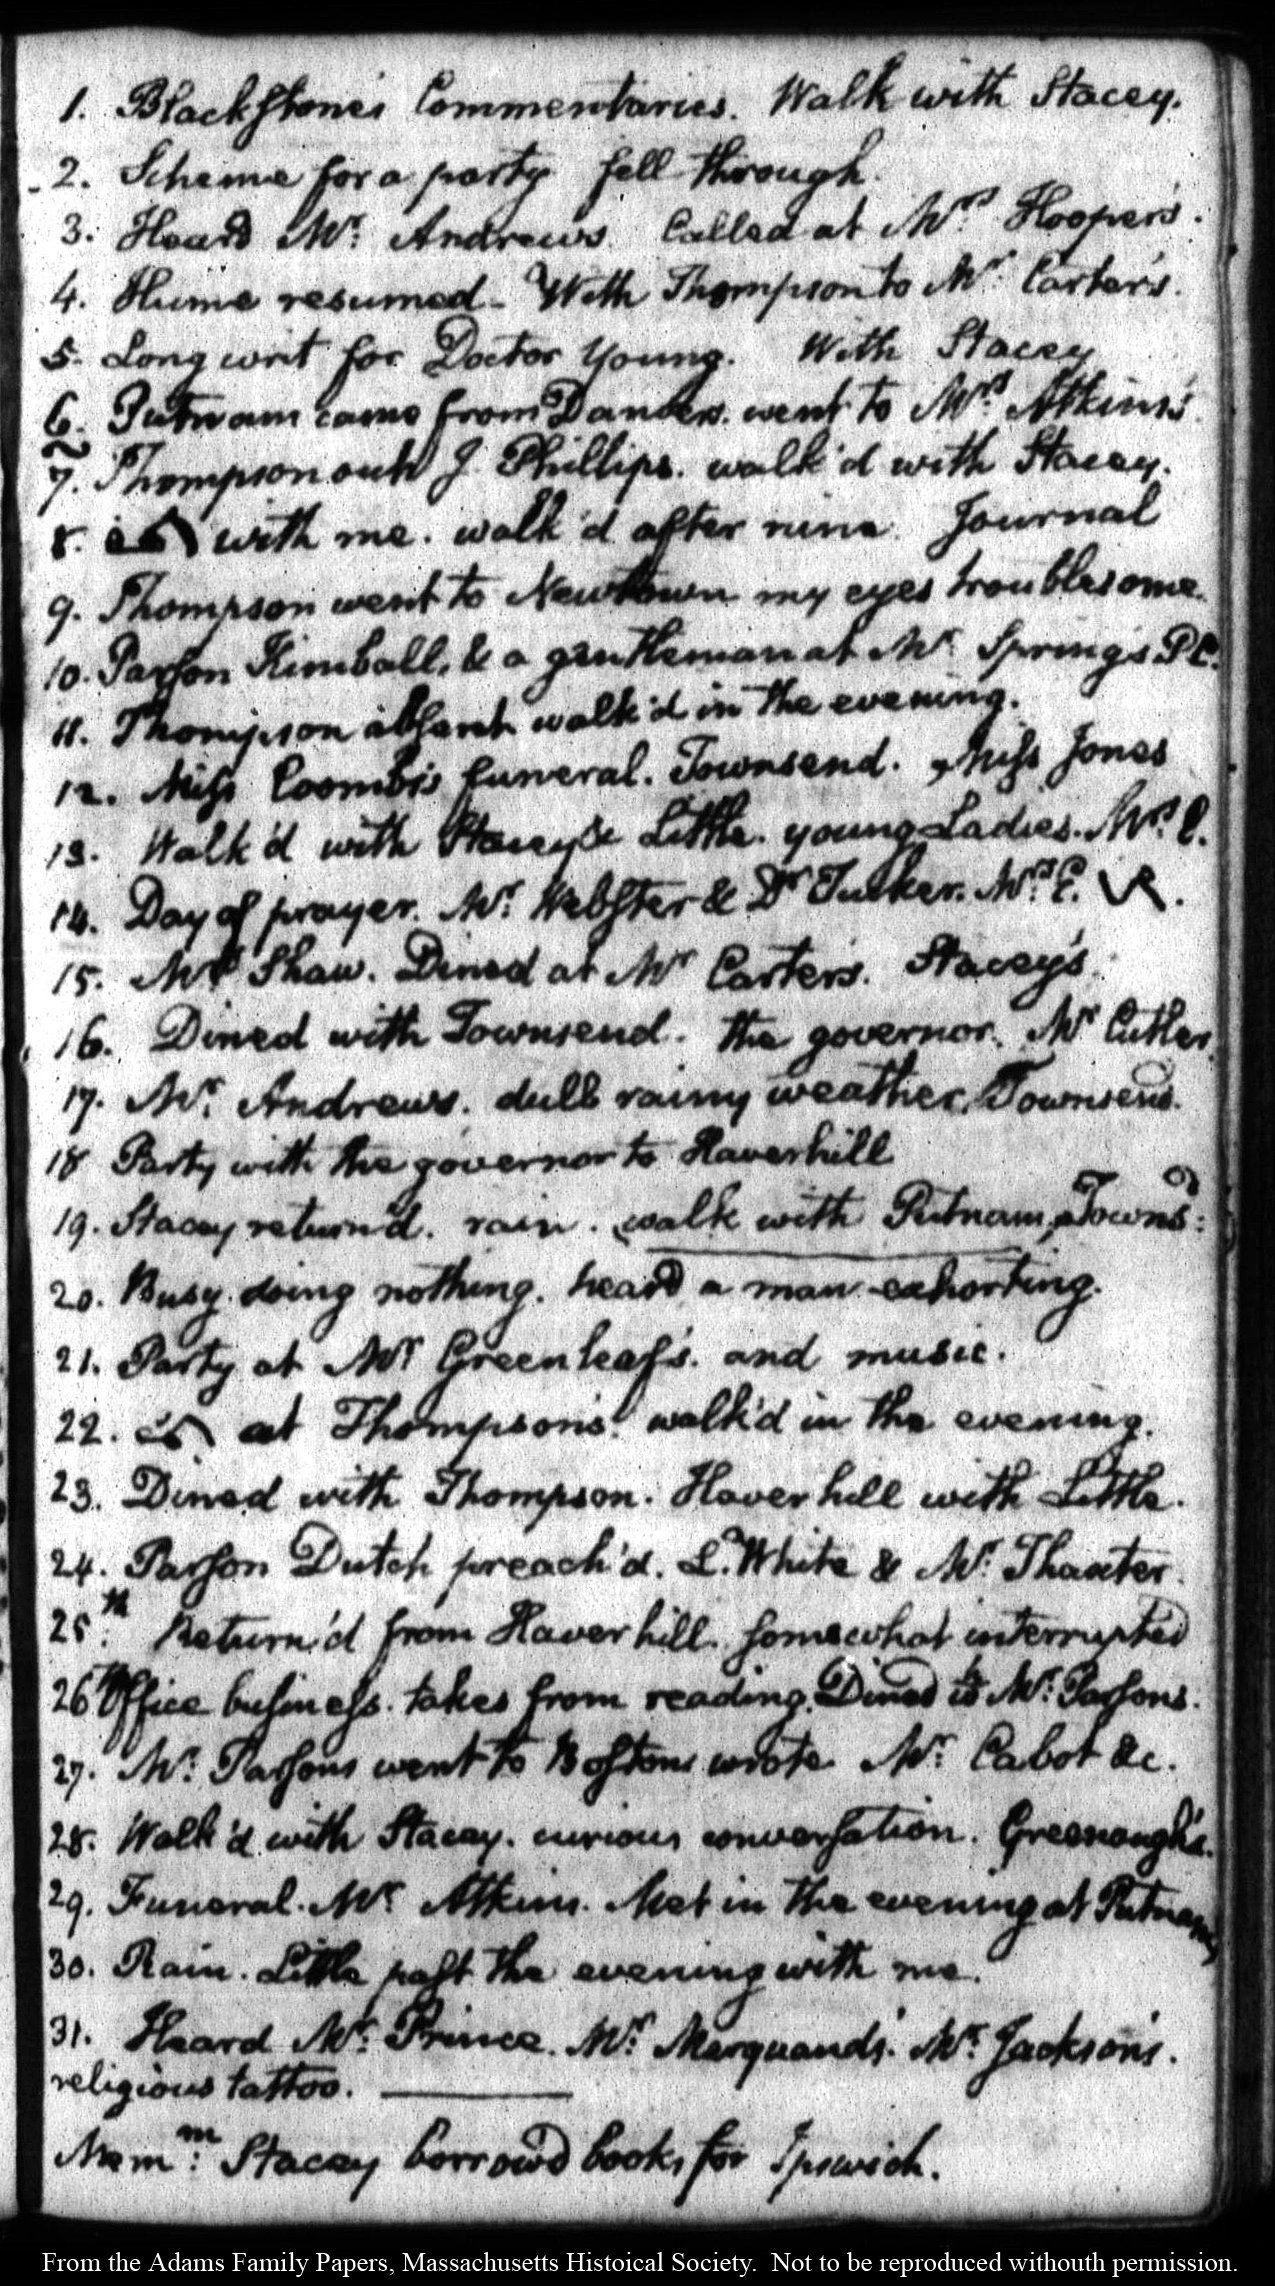 1. Blackstone's Commentaries. Walk with Stacey.
2. Scheme for a party fell through.
3. Heard Mr. Andrews. Called at Mrs. Hooper's.
4. Hume resumed. With Thompson to Mr. Carter's.
5. Long writ for Doctor Young. With Stacey
6. Putnam came from Danvers. went to Mrs. Atkins's
7. Thompson J. Phillips. walk'd with Stacey.
8. with me. walk'd after nine. Journal
9. Thompson went to Newtown my eyes troublesome.
10. Parson Kimball, & a gentleman at Mr. Spring's P.C.
11. Thompson absent walk'd in the evening.
12. Miss Coombs's funeral. Townsend. Miss Jones
13. Walk'd with Stacey & Little. young Ladies. Mrs. E.
14. Day of prayer. Mr. Webster & Dr. Tucker. Mrs. E.
15. Mr. Shaw. Dined at Mr. Carter's. Stacey's
16. Dined with Townsend. the governor. Mr. Cutler.
17. Mr. Andrews. dull rainy weather. Townsend.
18 Party with the governor to Haverhill
19. Stacey return'd. rain. walk with Putnam, Townsd:
20. Busy doing nothing. heard a man exhorting.
21. Party at Mr Greenleaf's. and music.
22. at Thompson's. walk'd in the evening.
23. Dined with Thompson. Haverhill with Little.
24. Parson Dutch preach'd. L. White & Mr. Thaxter.
25th: Return'd from Haverhill. somewhat interrupted
26th Office business. takes from reading. Dined Mr. Parsons.
27. Mr. Parsons went to Boston. wrote. Mr. Cabot &c.
28. Walk'd with Stacey. curious conversation. Greenough's.
29. Funeral. Mr. Atkins. Met in the evening at Putnam's
30. Rain. Little past the evening with me.
31. Heard Mr. Prince. Mr. Marquand's. Mr. Jackson's.
religious tattoo.
Memm: Stacey borrow'd books for Ipswich.
From the Adams Family Papers, Massachusetts Histoical Society. Not to be reproduced withouth permission.